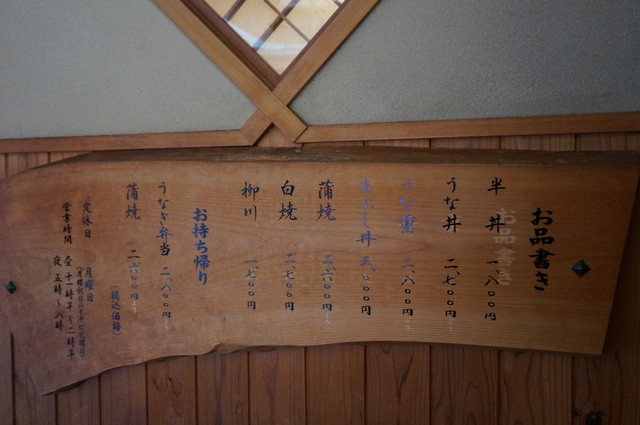 お品書き
お品書き
半丼 一、八〇〇円
うな丼 二、七〇〇円
うな重 二、八〇〇円
まぶし丼 三、〇〇〇円
蒲焼 二、六〇〇円
白焼 二、七〇〇円
柳川 一、七〇〇円
お持ち帰り
うなぎ弁当 二、八〇〇円
蒲焼 二、六〇〇円
(税込価格)
定休日 月曜日
営業時間 昼 十一時半〜二時半
夜 五時〜八時